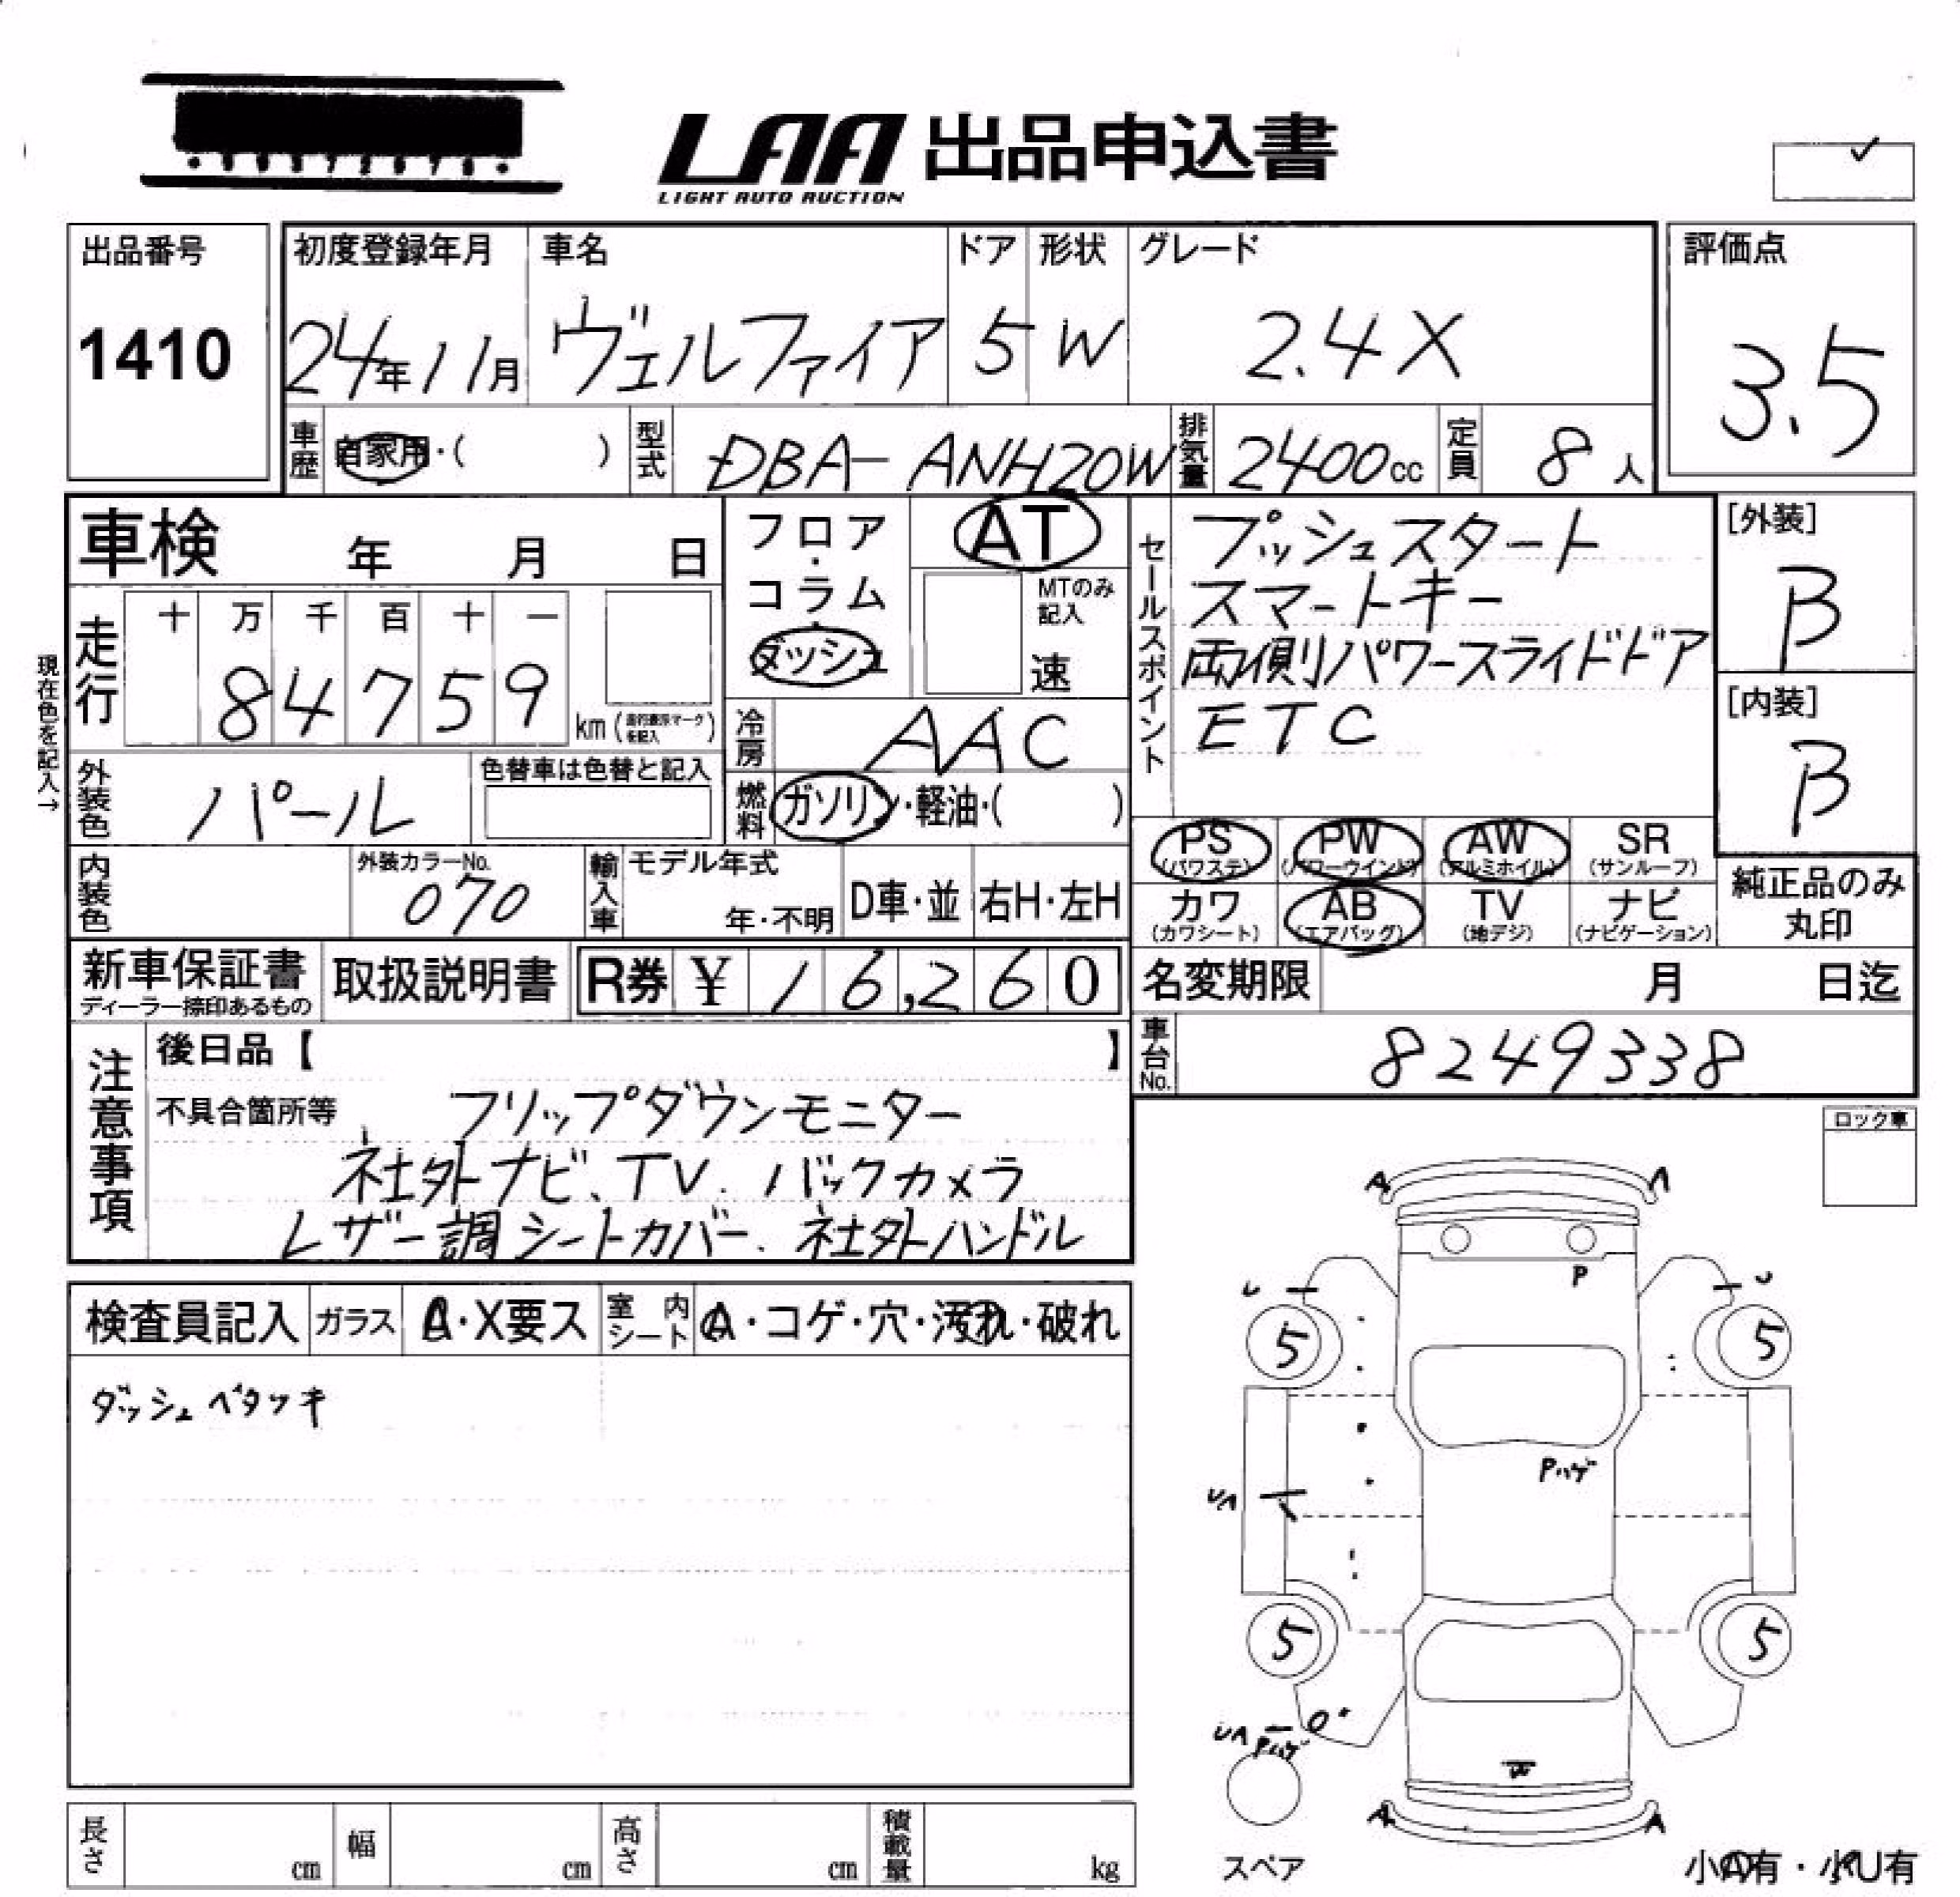 LAA 出品申込書
LIGHT AUTO AUCTION
出品番号
1410
初度登録年月
24年11月
車名
ヴェルファイア
ドア
5
形状
W
グレード
2.4X
評価点
3.5
車歴
自家用・( )
型式
DBA-ANH20W
排気量
2400cc
定員
8人
車検 年 月 日
フロア・コラム
ダッシュ
AT
MTのみ記入
速
セールスポイント
プッシュスタート
スマートキー
両側パワースライドドア
ETC
[外装]
B
[内装]
B
現在色を記入→
走行
十 万 千 百 十 一
8 4 7 5 9
km(
を記入)
冷房
AAC
外装色
パール
色替車は色替と記入
燃料
ガソリン・軽油・( )
PS (パワステ)
PW (パワーウインド)
AW (アルミホイル)
SR (サンルーフ)
カワ (カワシート)
AB (エアバッグ)
TV (地デジ)
ナビ (ナビゲーション)
純正品のみ
丸印
内装色
外装カラーNo.
070
輸入車
モデル年式
年・不明
D車・並
右H・左H
新車保証書
ディーラー捺印あるもの
取扱説明書
R券 ¥ 16,260
名変期限 月 日迄
車台No.
8249338
注意事項
後日品【 】
不具合箇所等 フリップダウンモニター
社外ナビ、TV. バックカメラ
レザー調シートカバー. 社外ハンドル
ロック車
検査員記入
ガラス
A・X要ス
室内シート
A・コゲ・穴・汚れ・破れ
ダッシュベタツキ
A
P
U
U
5
5
Pハゲ
5
5
Pハゲ
W
A
A
スペア
小A有・小U有
長さ cm
幅 cm
高さ cm
積載量 kg